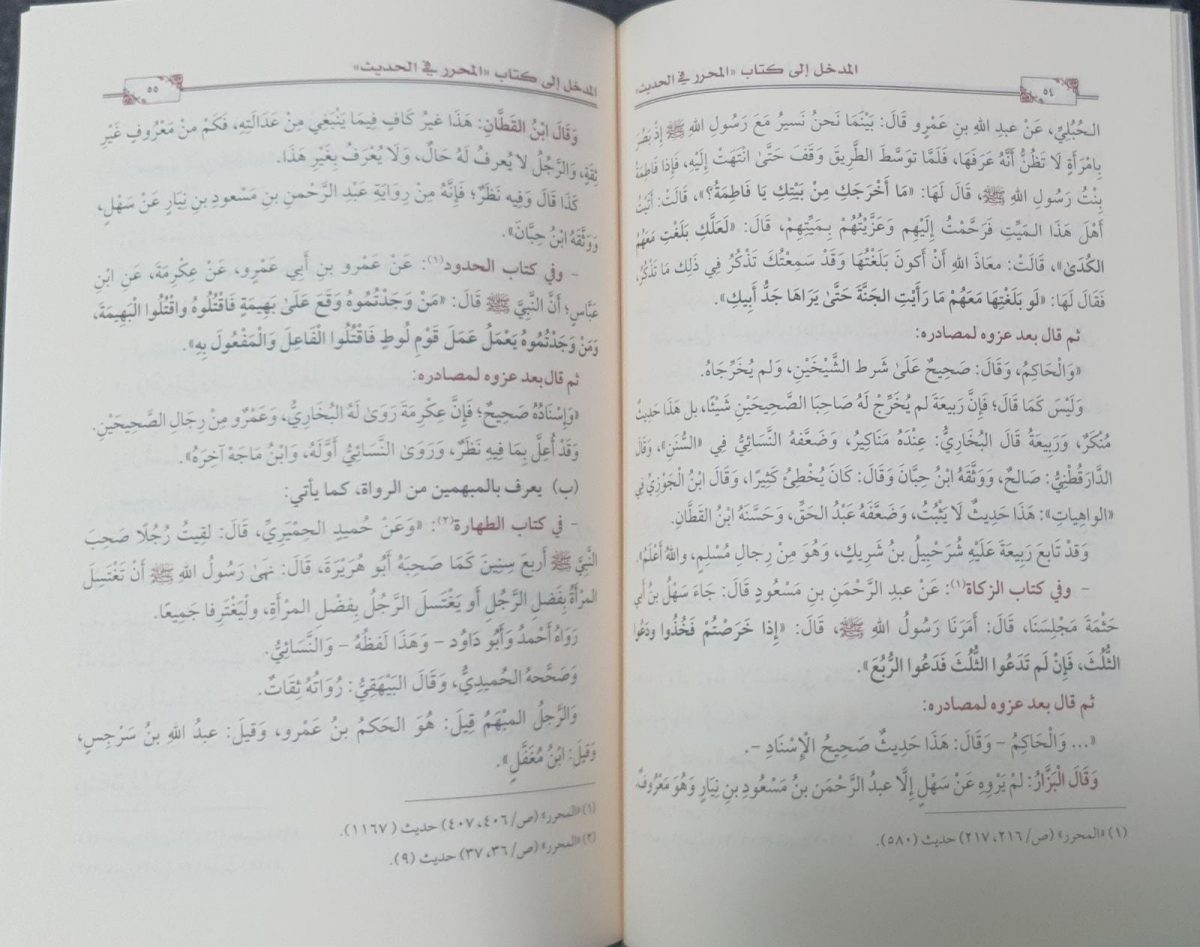 المدخل إلى كتاب «المحرر في الحديث»
٥٤
الحُبُلِيِّ، عَنْ عبدِ اللهِ بنِ عَمْرٍو قَالَ: بَيْنَمَا نَحنُ نَسيرُ مَعَ رَسُولِ اللهِ ﷺ إِذْ بَصُرَ
بِامْرَأَةٍ لَا تَظُنُّ أَنَّهُ عَرَفَهَا، فَلَمَّا تَوَسَّطَ الطَّرِيقَ وَقَفَ حَتَّىٰ انْتَهَتْ إِلَيْهِ، فَإِذا فَاطِمَةُ
بِنْتُ رَسُولِ اللهِ ﷺ، قَالَ لَهَا: «مَا أَخْرَجَكِ مِنْ بَيْتِكِ يَا فَاطِمَةُ؟»، قَالَتْ: أَتَيْتُ
أَهْلَ هَذَا المَيِّتِ فَرَحَّمْتُ إِلَيْهِم وَعَزَّيْتُهُمْ بِمَيِّتِهِمْ، قَالَ: «لَعَلَّكِ بَلَغْتِ مَعَهُمُ
الكُدَىٰ»، قَالَتْ: مَعاذَ اللهِ أَنْ أَكونَ بَلَغْتُهَا وَقَدْ سَمِعْتُكَ تَذْكُرُ فِي ذَلِكَ مَا تَذْكُرُ،
فَقَالَ لَهَا: «لَو بَلَغْتِها مَعَهُمْ مَا رَأَيْتِ الجَنَّةَ حَتَّىٰ يَرَاهَا جَدُّ أَبِيكِ».
ثم قال بعد عزوه لمصادره:
«وَالْحَاكِمُ، وَقَالَ: صَحِيحٌ عَلَىٰ شَرطِ الشَّيْخَينِ، وَلم يُخَرِّجَاهُ.
وَلَيْسَ كَمَا قَالَ؛ فَإِنَّ رَبِيعَةَ لم يُخَرِّجْ لَهُ صَاحِبَا الصَّحِيحَينِ شَيْئًا، بل هَذَا حَدِيثٌ
مُنْكَرٌ، وَرَبِيعَةُ قَالَ البُخَارِيُّ: عِنْدَهُ مَنَاكِيرُ، وَضَعَّفَهُ النَّسَائِيُّ فِي «السُّنَنِ»، وَقَالَ
الدَّارَقُطْنِيُّ: صَالحٌ، وَوَثَّقَهُ ابْنُ حِبَّانَ وَقَالَ: كَانَ يُخْطِئُ كَثِيرًا، وَقَالَ ابْنُ الجَوْزِيِّ فِي
«الواهِيَاتِ»: هَذَا حَدِيثٌ لَا يَثْبُتُ، وَضَعَّفَهُ عَبْدُ الحَقِّ، وَحَسَّنَهُ ابْنُ القَطَّانِ.
وَقَدْ تَابَعَ رَبِيعَةَ عَلَيْهِ شُرَحْبِيلُ بنُ شَرِيكٍ، وَهُوَ مِنْ رِجالِ مُسْلِمٍ، واللهُ أَعْلَمُ».
- وفي كتاب الزكاة(١): عَنْ عبدِ الرَّحْمَنِ بنِ مَسْعُودٍ قَالَ: جَاءَ سَهْلُ بنُ أَبي
حَثْمَةَ مَجْلِسَنَا، قَالَ: أَمَرَنَا رَسُولُ اللهِ ﷺ، قَالَ: «إِذا خَرَصْتُمْ فَخُذُوا ودَعُوا
الثُّلُثَ، فَإِنْ لَم تَدَعُوا الثُّلُثَ فَدَعُوا الرُّبُعَ».
ثم قال بعد عزوه لمصادره:
«... وَالْحَاكِمُ - وَقَالَ: هَذَا حَدِيثٌ صَحِيحُ الإِسْنَادِ -.
وَقَالَ البَزَّارُ: لمْ يَرْوِهِ عَنْ سَهْلٍ إِلَّا عبدُ الرَّحْمَنِ بنُ مَسْعُودِ بنِ نِيَارٍ وَهُوَ مَعْرُوفٌ
(١) «المحرر» (ص/ ٢١٦، ٢١٧) حديث (٥٨٠).
المدخل إلى كتاب «المحرر في الحديث»
٥٥
وَقَالَ ابْنُ القَطَّانِ: هَذَا غيرُ كَافٍ فِيما يَنْبَغِي مِنْ عَدَالَتِهِ، فَكَمْ مِنْ مَعْرُوفٍ غَيْرِ
ثِقَةٍ، وَالرَّجُلُ لا يُعرفُ لَهُ حَالٌ، وَلَا يُعْرَفُ بِغَيْرِ هَذَا.
كَذَا قَالَ وَفِيه نَظَرٌ؛ فَإِنَّهُ مِنْ رِوَايَةِ عَبْدِ الرَّحْمنِ بنِ مَسْعودِ بنِ نِيَارٍ عَنْ سَهْلٍ،
وَوَثَّقَهُ ابْنُ حِبَّانَ».
- وفي كتاب الحدود(١): عَنْ عَمْرِو بنِ أَبِي عَمْرٍو، عَنْ عِكْرِمَةَ، عَنِ ابْنِ
عبَّاسٍ؛ أَنَّ النَّبِيَّ ﷺ قَالَ: «مَنْ وَجَدْتُمُوهُ وَقَعَ عَلَىٰ بَهِيمَةٍ فَاقْتُلُوهُ واقْتُلُوا الْبَهِيمَةَ،
وَمَنْ وَجَدْتُموهُ يَعْمَلُ عَمَلَ قَوْمِ لُوطٍ فَاقْتُلُوا الْفَاعِلَ وَالْمَفْعُولَ بِهِ».
ثم قال بعد عزوه لمصادره:
«وَإِسْنَادُهُ صَحِيحٌ؛ فَإِنَّ عِكْرِمَةَ رَوَىٰ لَهُ البُخَارِيُّ، وَعَمْرٌو مِنْ رِجَالِ الصَّحِيحَيْنِ.
وَقَدْ أُعِلَّ بِمَا فِيهِ نَظَرٌ، وَرَوَىٰ النَّسَائِيُّ أَوَّلَهُ، وَابْنُ مَاجَهْ آخِرَهُ».
(ب) يعرف بالمبهمين من الرواة، كما يأتي:
- في كتاب الطهارة(٢): «وَعَنْ حُميدٍ الحِمْيَرِيِّ، قَالَ: لقِيتُ رَجُلًا صَحِبَ
النَّبِيَّ ﷺ أَربعَ سِنِينَ كَمَا صَحِبَهُ أَبُو هُرَيْرَةَ، قَالَ: نهَىٰ رَسُولُ اللهِ ﷺ أَنْ تَغْتَسِلَ
المرْأَةُ بِفَضلِ الرَّجُلِ أَو يَغْتَسَلَ الرَّجُلُ بِفَضْلِ المرْأَةِ، ولْيَغْتَرِفا جَمِيعًا.
رَوَاهُ أَحْمَدُ وَأَبُو دَاوُد - وَهَذَا لَفظُهُ - وَالنَّسَائِيُّ.
وَصَحَّحهُ الحُميدِيُّ، وَقَالَ البَيْهَقِيُّ: رُوَاتُهُ ثِقَاتٌ.
وَالرَّجلُ المبْهَمُ قِيلَ: هُوَ الحَكمُ بنُ عَمْرٍو، وَقيلَ: عبدُ اللهِ بنُ سَرْجِسٍ،
وَقيلَ: ابْنُ مُغَفَّلٍ».
(١) «المحرر» (ص/ ٤٠٦، ٤٠٧) حديث (١١٦٧).
(٢) «المحرر» (ص/ ٣٦، ٣٧) حديث (٩).